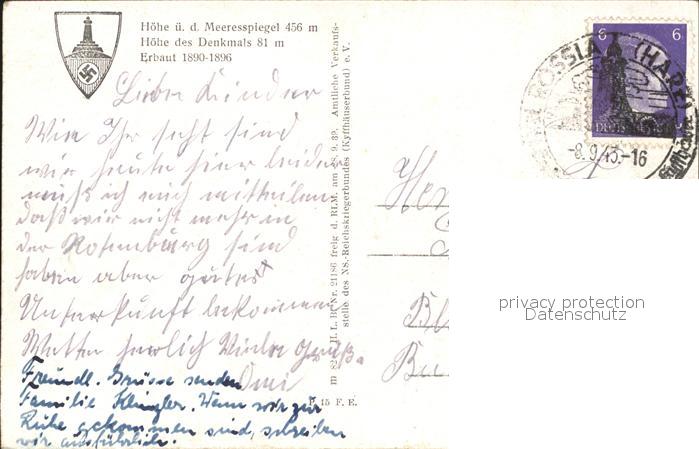 Höhe ü. d. Meeresspiegel 456 m
Höhe des Denkmals 81 m
Erbaut 1890-1896
Liebe Kinder
Wie Ihr seht sind
wir heute hier leider
muß ich mich mitteilen
daß wir nicht mehr in
der Rotenburg sind
haben aber gutes
Unterkunft bekommen
Wetter herrlich Viele Grüße
Omi
Freundl. Grüsse senden
Familie Klingler. Wenn wir zur
Ruhe gekommen sind, schreiben
wir ausführlich.
Nr. 21186 freig. d. RLM. am 28. 9. 39. Amtliche Verkaufs-
stelle des NS.-Reichskriegerbundes (Kyffhäuserbund) e. V.
15 F. E.
6 6
ROSSLA (HARZ)
-8.9.43.-16
privacy protection
Datenschutz